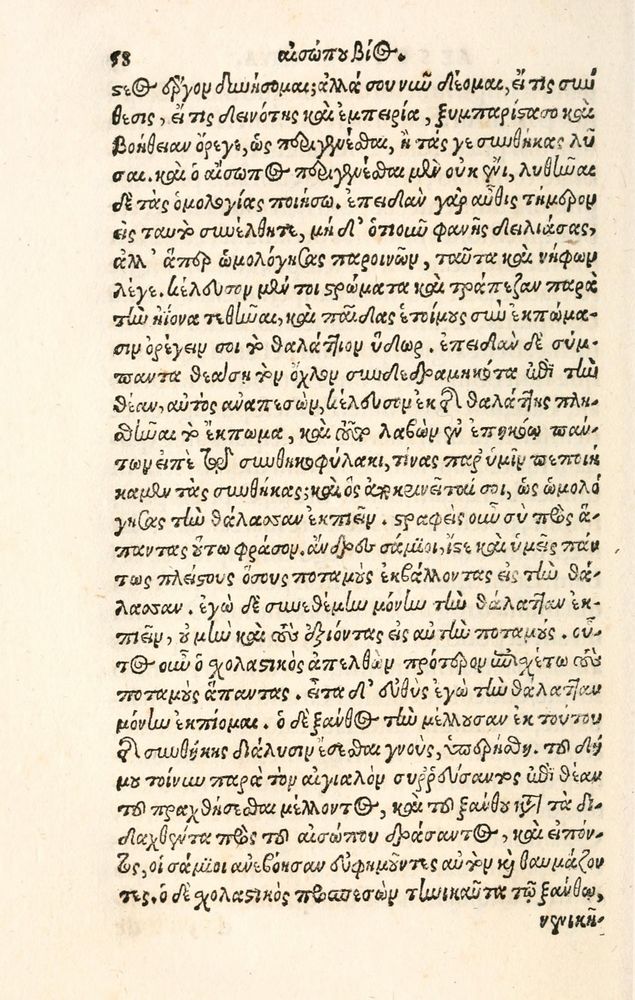 58 αἰσώπου βίος.
στὸς ἔργον διωήσομαι; ἀλλά σου νιῦ δέομαι, εἴ τις σύν
θεσις, εἴ τις δεινότης καὶ ἐμπειρία, ξυμπαρίστασο καὶ
βοήθειαν ὄρεγε, ὡς περιγενέσθαι, ἢ τάς γε συνθήκας λῦ
σαι. καὶ ὁ αἴσωπος περιγενέσθαι μὲν οὐκ ἔνι, λυθῆναι
δὲ τὰς ὁμολογίας ποιήσω. ἐπειδὰν γὰρ αὖθις τήμερον
εἰς ταυτὸ συνέλθητε, μὴ δ' ὁπιοῦν φανῇς δειλιάσας,
ἀλλ' ἅπερ ὡμολόγησας παροινῶν, ταῦτα καὶ νήφων
λέγε. κέλευσον μέν τοι στρώματα καὶ τράπεζαν παρὰ
τὴν ἠϊόνα τεθῆναι, καὶ παῖδας ἑτοίμους σὺν ἐκπώμα-
σιν ὀρέγειν σοι τὸ θαλάττιον ὕδωρ. ἐπειδὰν δὲ σύμ-
παντα θεάσῃ τὸν ὄχλον συνδεδραμηκότα ἐπὶ τὴν
θέαν, αὐτὸς ἀναπεσών, κέλευσον ἐκ τῆς θαλάττης πλη-
σθῆναι τὸ ἔκπωμα, καὶ τοῦτο λαβὼν ἐν ἐπηκόῳ πάν-
των εἰπὲ τῷ συνθηκοφύλακι, τίνας παρ' ὑμῖν πεποίη
κα μὲν τὰς συνθήκας; καὶ ὃς ἀποκρινεῖταί σοι, ὡς ὡμολό
γησας τὴν θάλασσαν ἐκπιεῖν. στραφεὶς οὖν σὺ πρὸς ἅ-
παντας οὕτω φράσον. ἄνδρες σάμιοι, ἴστε καὶ ὑμεῖς πάν
τως πλείστους ὅσους ποταμοὺς ἐκβάλλοντας εἰς τὴν θά-
λασσαν. ἐγὼ δὲ συνεθέμην μόνην τὴν θάλατταν ἐκ-
πιεῖν, οὐ μὴν καὶ τοὺς ἐξιόντας εἰς αὐτὴν ποταμούς. οὗ-
τος οὖν ὁ σχολαστικὸς ἀπελθὼν πρότερον ἐπισχέτω τοὺς
ποταμοὺς ἅπαντας. εἶτα δ' εὐθὺς ἐγὼ τὴν θάλατταν
μόνην ἐκπίομαι. ὁ δὲ ξάνθος τὴν μέλλουσαν ἐκ τούτου
τῆς συνθήκης διάλυσιν ἔσεσθαι γνούς, ὑπερήσθη. τοῦ δή
μου τοίνυν παρὰ τὸν αἰγιαλὸν συρρεύσαντος ἐπὶ θέαν
τοῦ πραχθήσεσθαι μέλλοντος, καὶ τοῦ ξάνθου κατὰ τὰ δι-
δαχθέντα πρὸς τοῦ αἰσώπου δράσαντος, καὶ εἰπόν-
τος, οἱ σάμιοι ἀνεβόησαν εὐφημοῦντες αὐτὸν καὶ θαυμάζον
τες. ὁ δὲ σχολαστικὸς προσπεσὼν τηνικαῦτα τῷ ξάνθῳ,
νενικῆ-